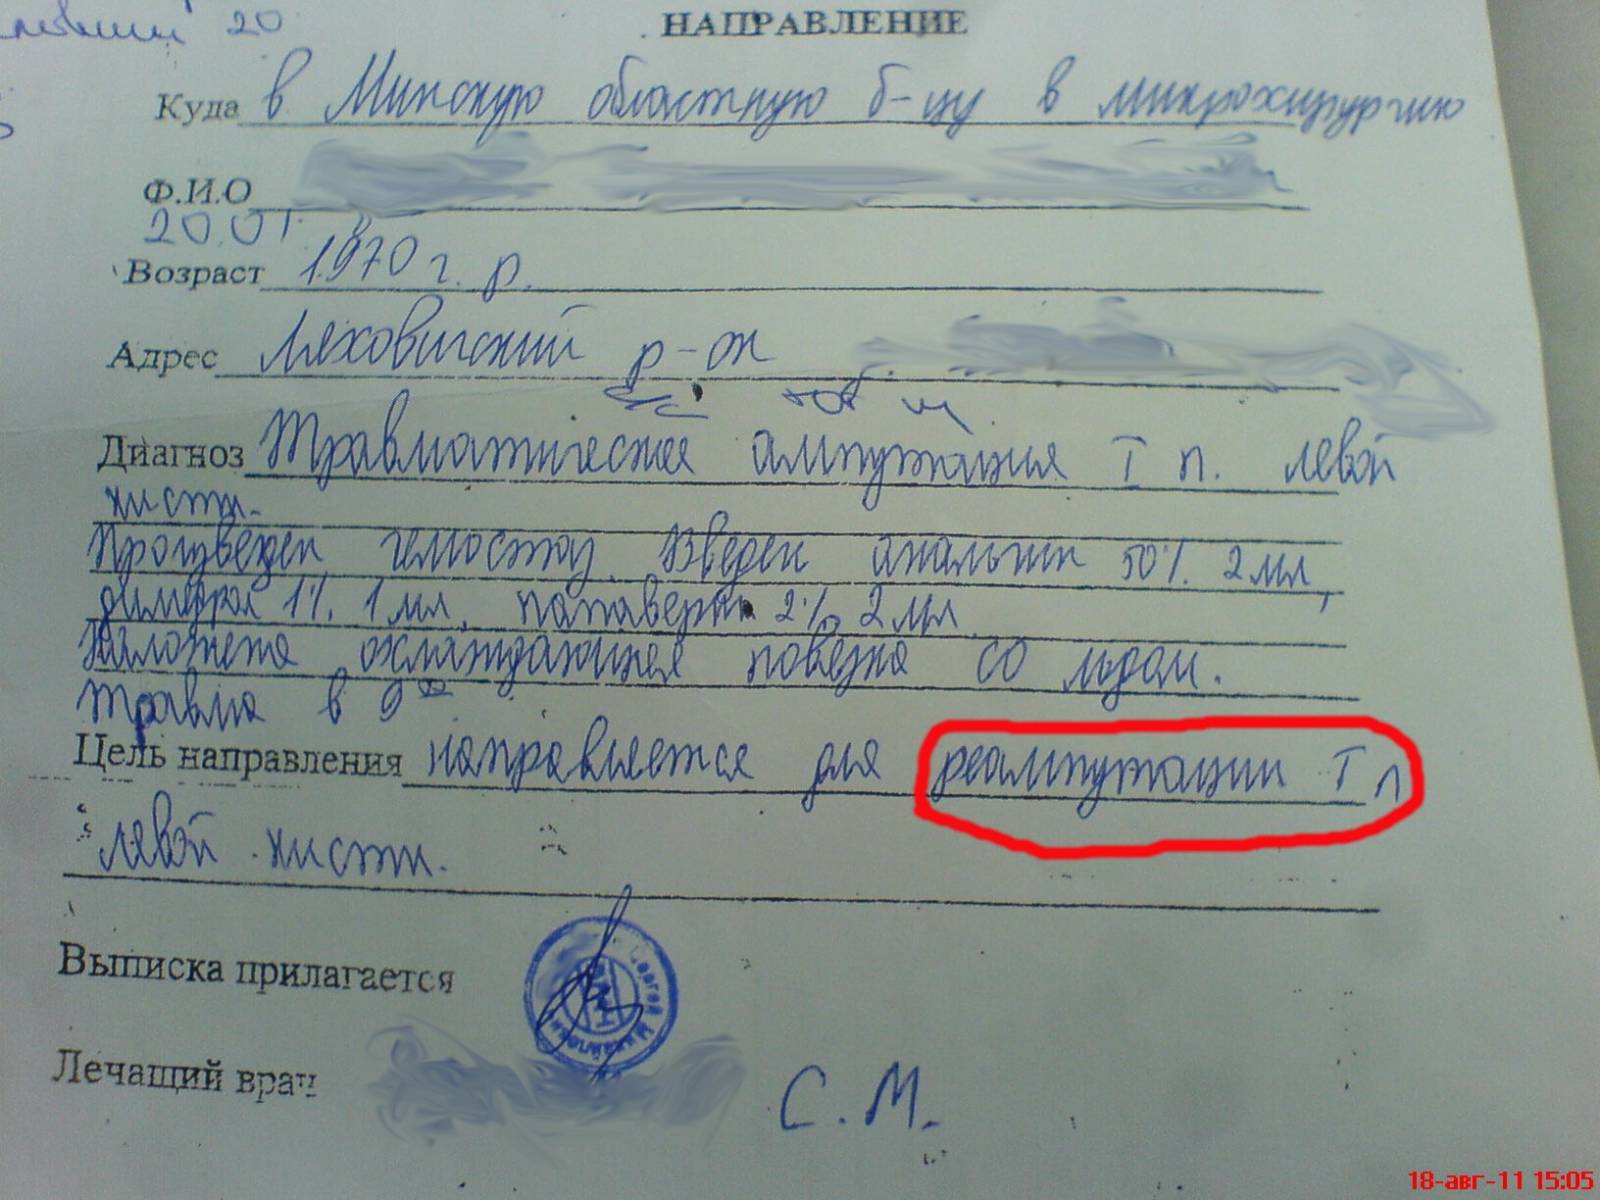 20
НАПРАВЛЕНИЕ
Куда в Минскую областную б-цу в микрохирургию
Ф.И.О
20.01.
Возраст 1970 г. р.
Адрес Ляховичский р-он
Диагноз Травматическая ампутация I п. левой
кисти.
Произведен гемостаз. Введен анальгин 50% 2 мл,
димедрол 1% 1 мл, папаверин 2% 2 мл
Наложена охлаждающая повязка со льдом.
Травма в 9 00
Цель направления направляется для реампутации I п
левой кисти.
Выписка прилагается
Сергей
Лечащий врач С.М.
18-авг-11 15:05